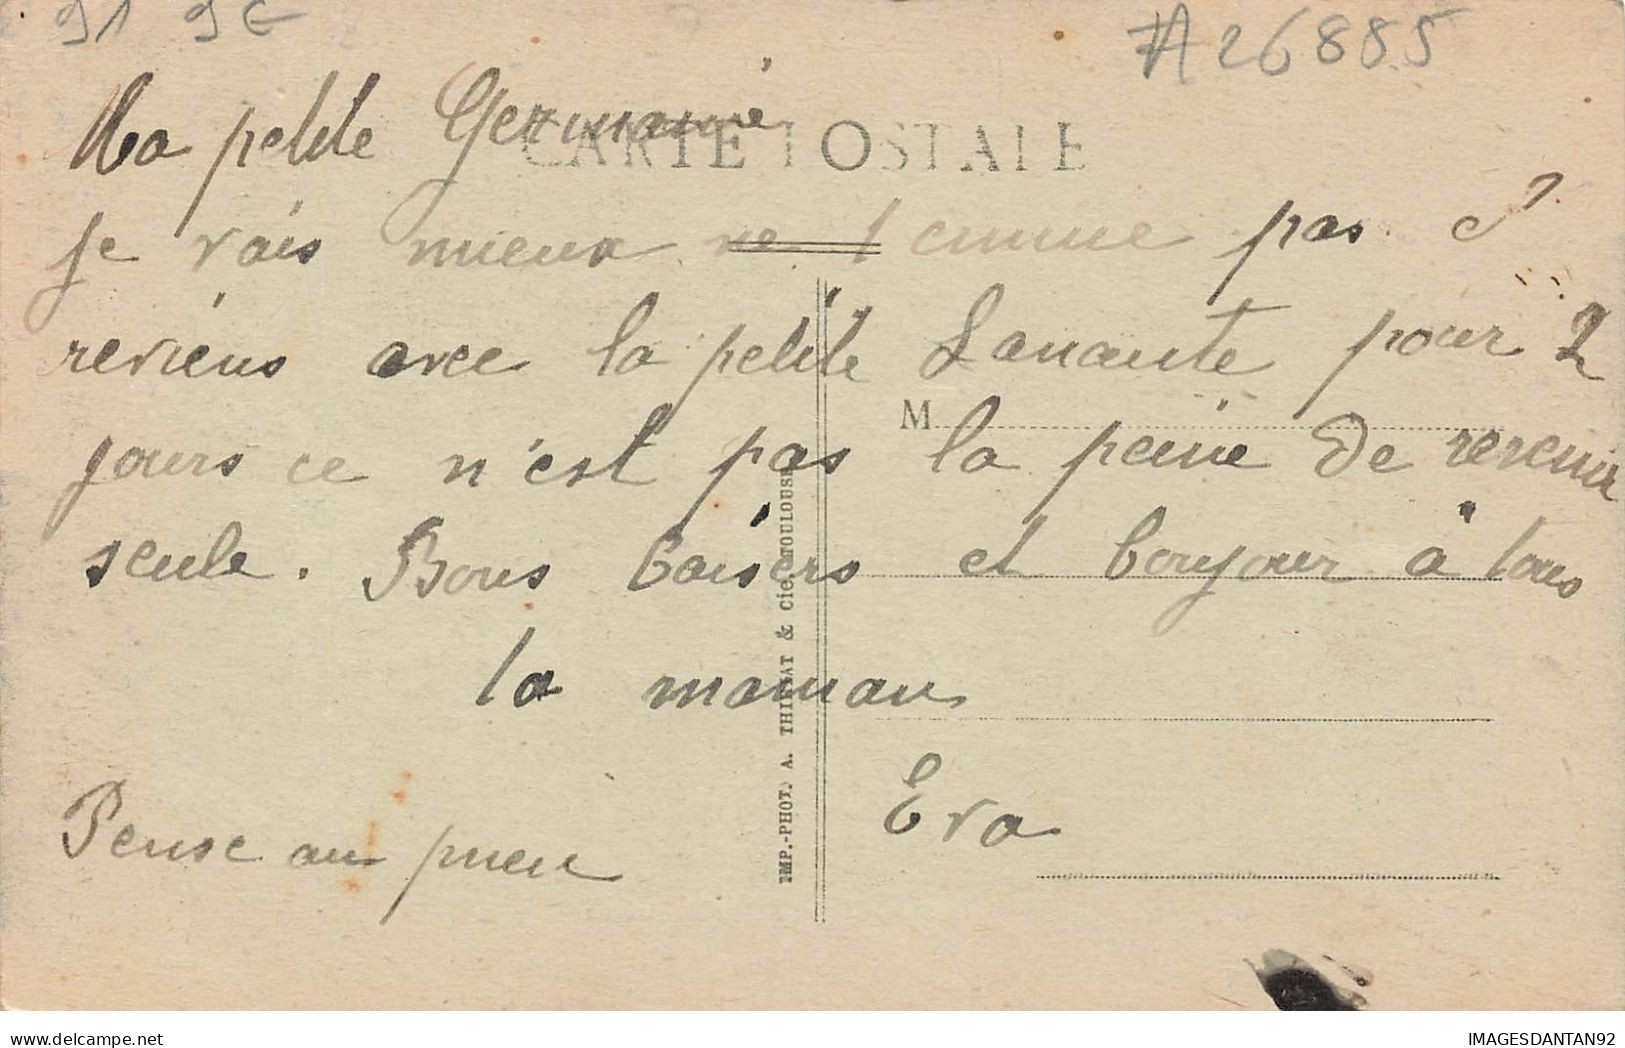 91 9E
A26885
CARTE POSTALE
Ma petite Germaine
je vais mieux ne t'ennuie pas
reviens avec la petite pour 2
M
jours ce n'est pas la peine de revenir
seule. Bons baisers et bonjour à tous
ta maman
Eva
Pense au pneu
IMP.-PHOT. A. THIRIAT & Cie. TOULOUSE
IMAGESDANTAN92